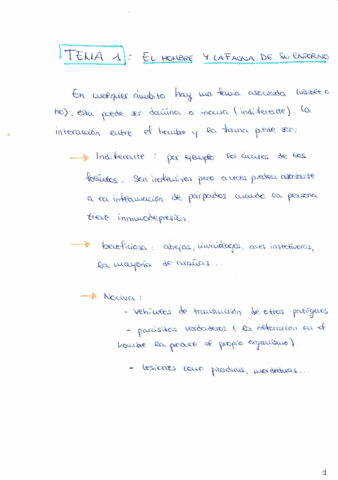 TEMA 1: EL HOMBRE Y LA FAUNA DE SU ENTORNO
En cualquier ámbito hay una fauna asociada (visible o
no), esta puede ser dañina o inocua (indiferente). La
interacción entre el hombre y la fauna puede ser:
→ Indiferente: por ejemplo los ácaros de los
folículos. Son inofensivos pero a veces pueden asociarse
a la inflamación de parpados cuando la persona
tiene inmunodepresión.
→ Beneficiosa: abejas, murciélagos, aves insectívoras,
la mayoría de arañas...
→ Nociva:
- vehículos de transmisión de otros patógenos
- parásitos verdaderos (la alteración en el
hombre la produce el propio organismo)
- lesiones como picaduras, mordeduras...
1